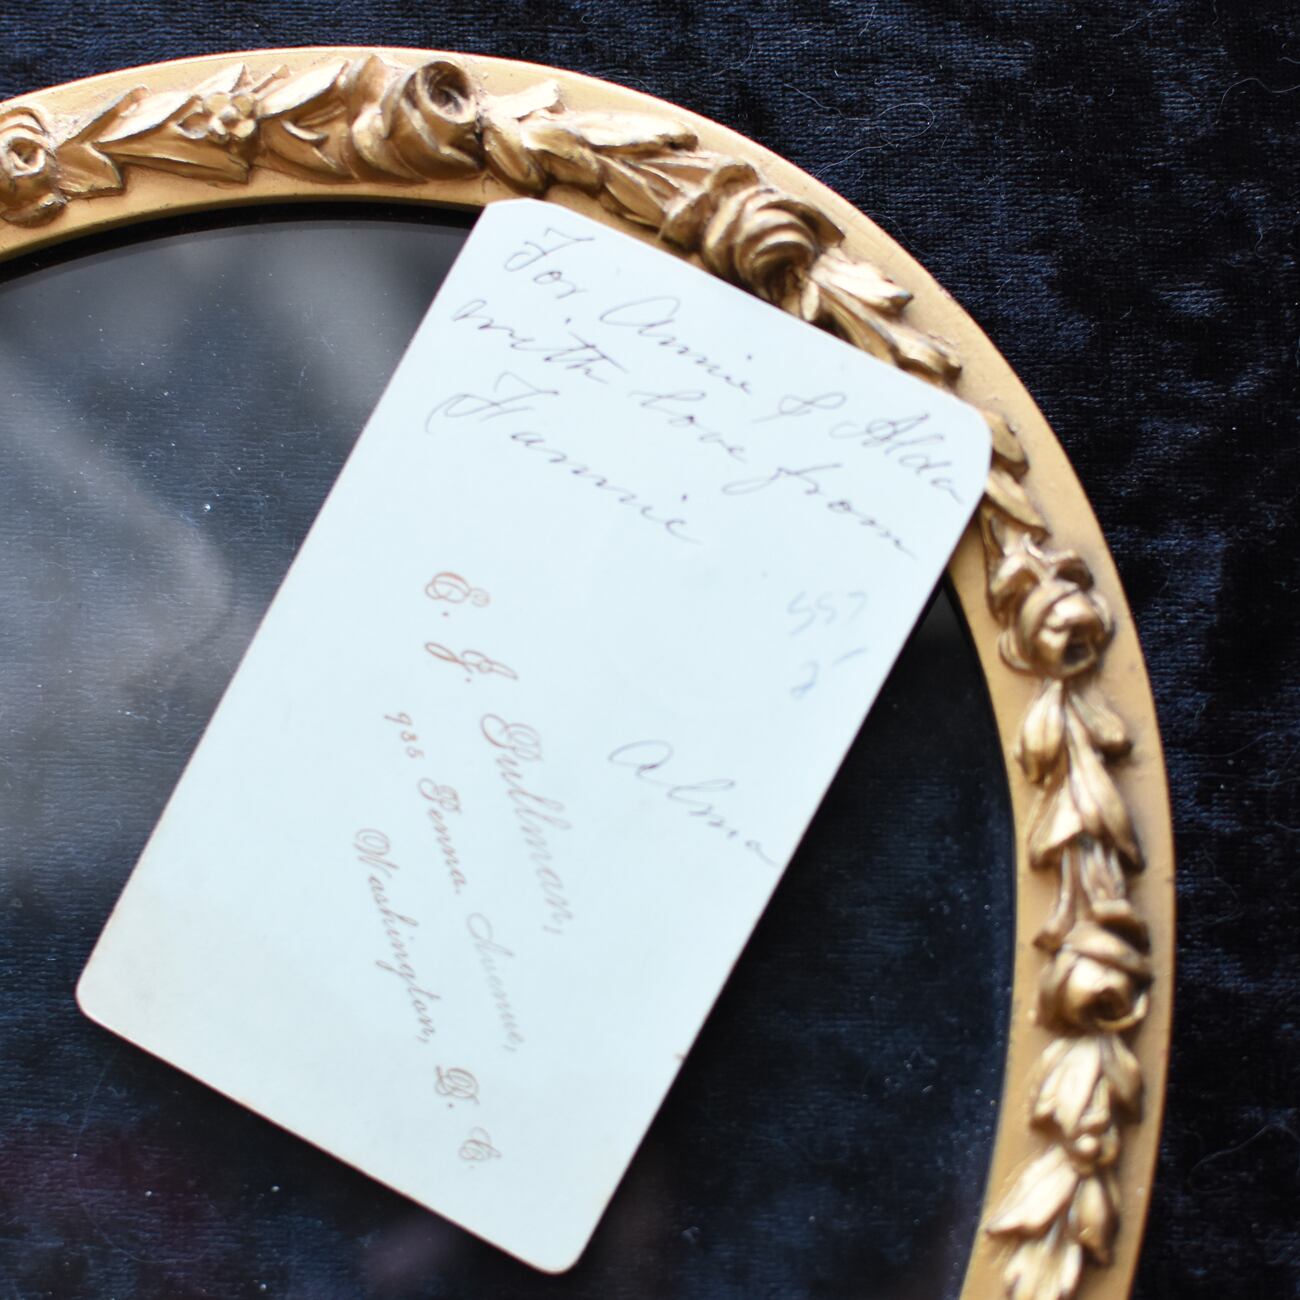 For. Annie & Alda
with love from
Fannie
557
2
Alma
E. J. Pullman,
935 Penna. Avenue,
Washington, D. C.